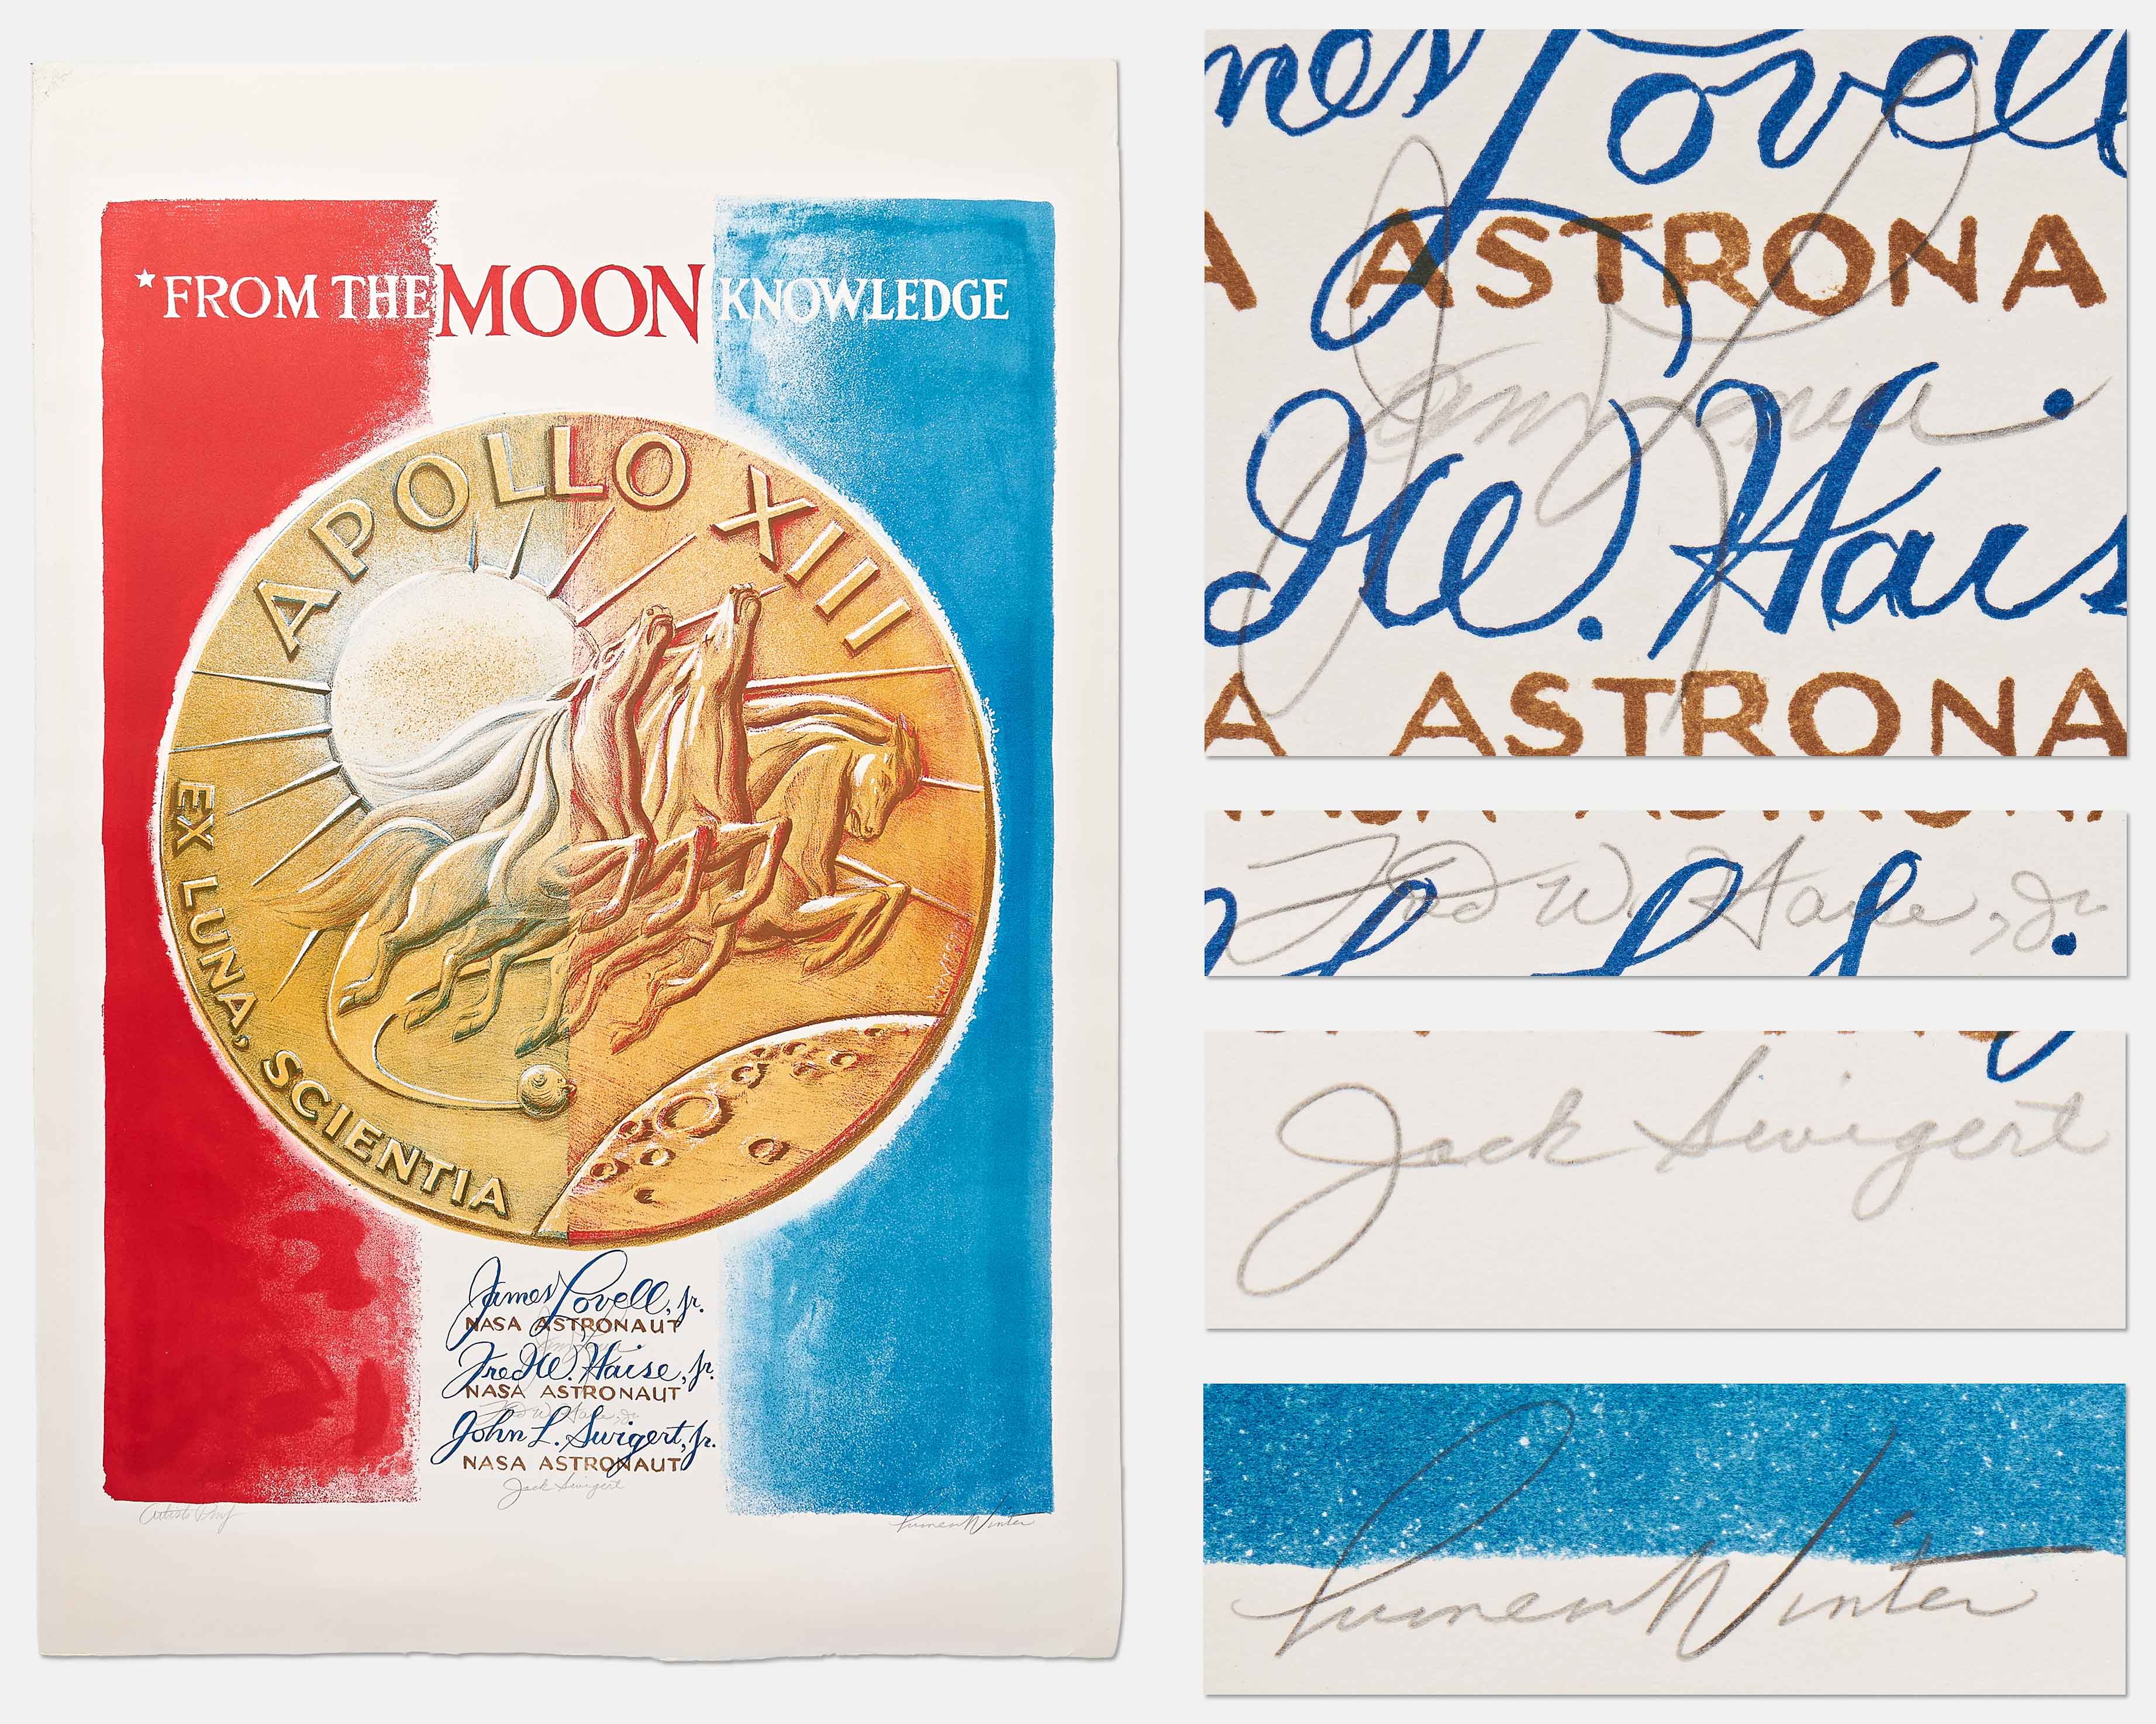 *FROM THE MOON KNOWLEDGE
APOLLO XIII
EX LUNA, SCIENTIA
James Lovell, Jr.
NASA ASTRONAUT
Fred W. Haise, Jr.
NASA ASTRONAUT
Fred W. Haise, Jr
John L. Swigert, Jr.
NASA ASTRONAUT
Jack Swigert
Artist's Proof
Lumen Winter
mes Lovell
A ASTRONA
Jim Lovell
d W. Hais
A ASTRONA
NASA ASTRONA
Fred W. Haise, Jr
Jack Swigert
Lumen Winter